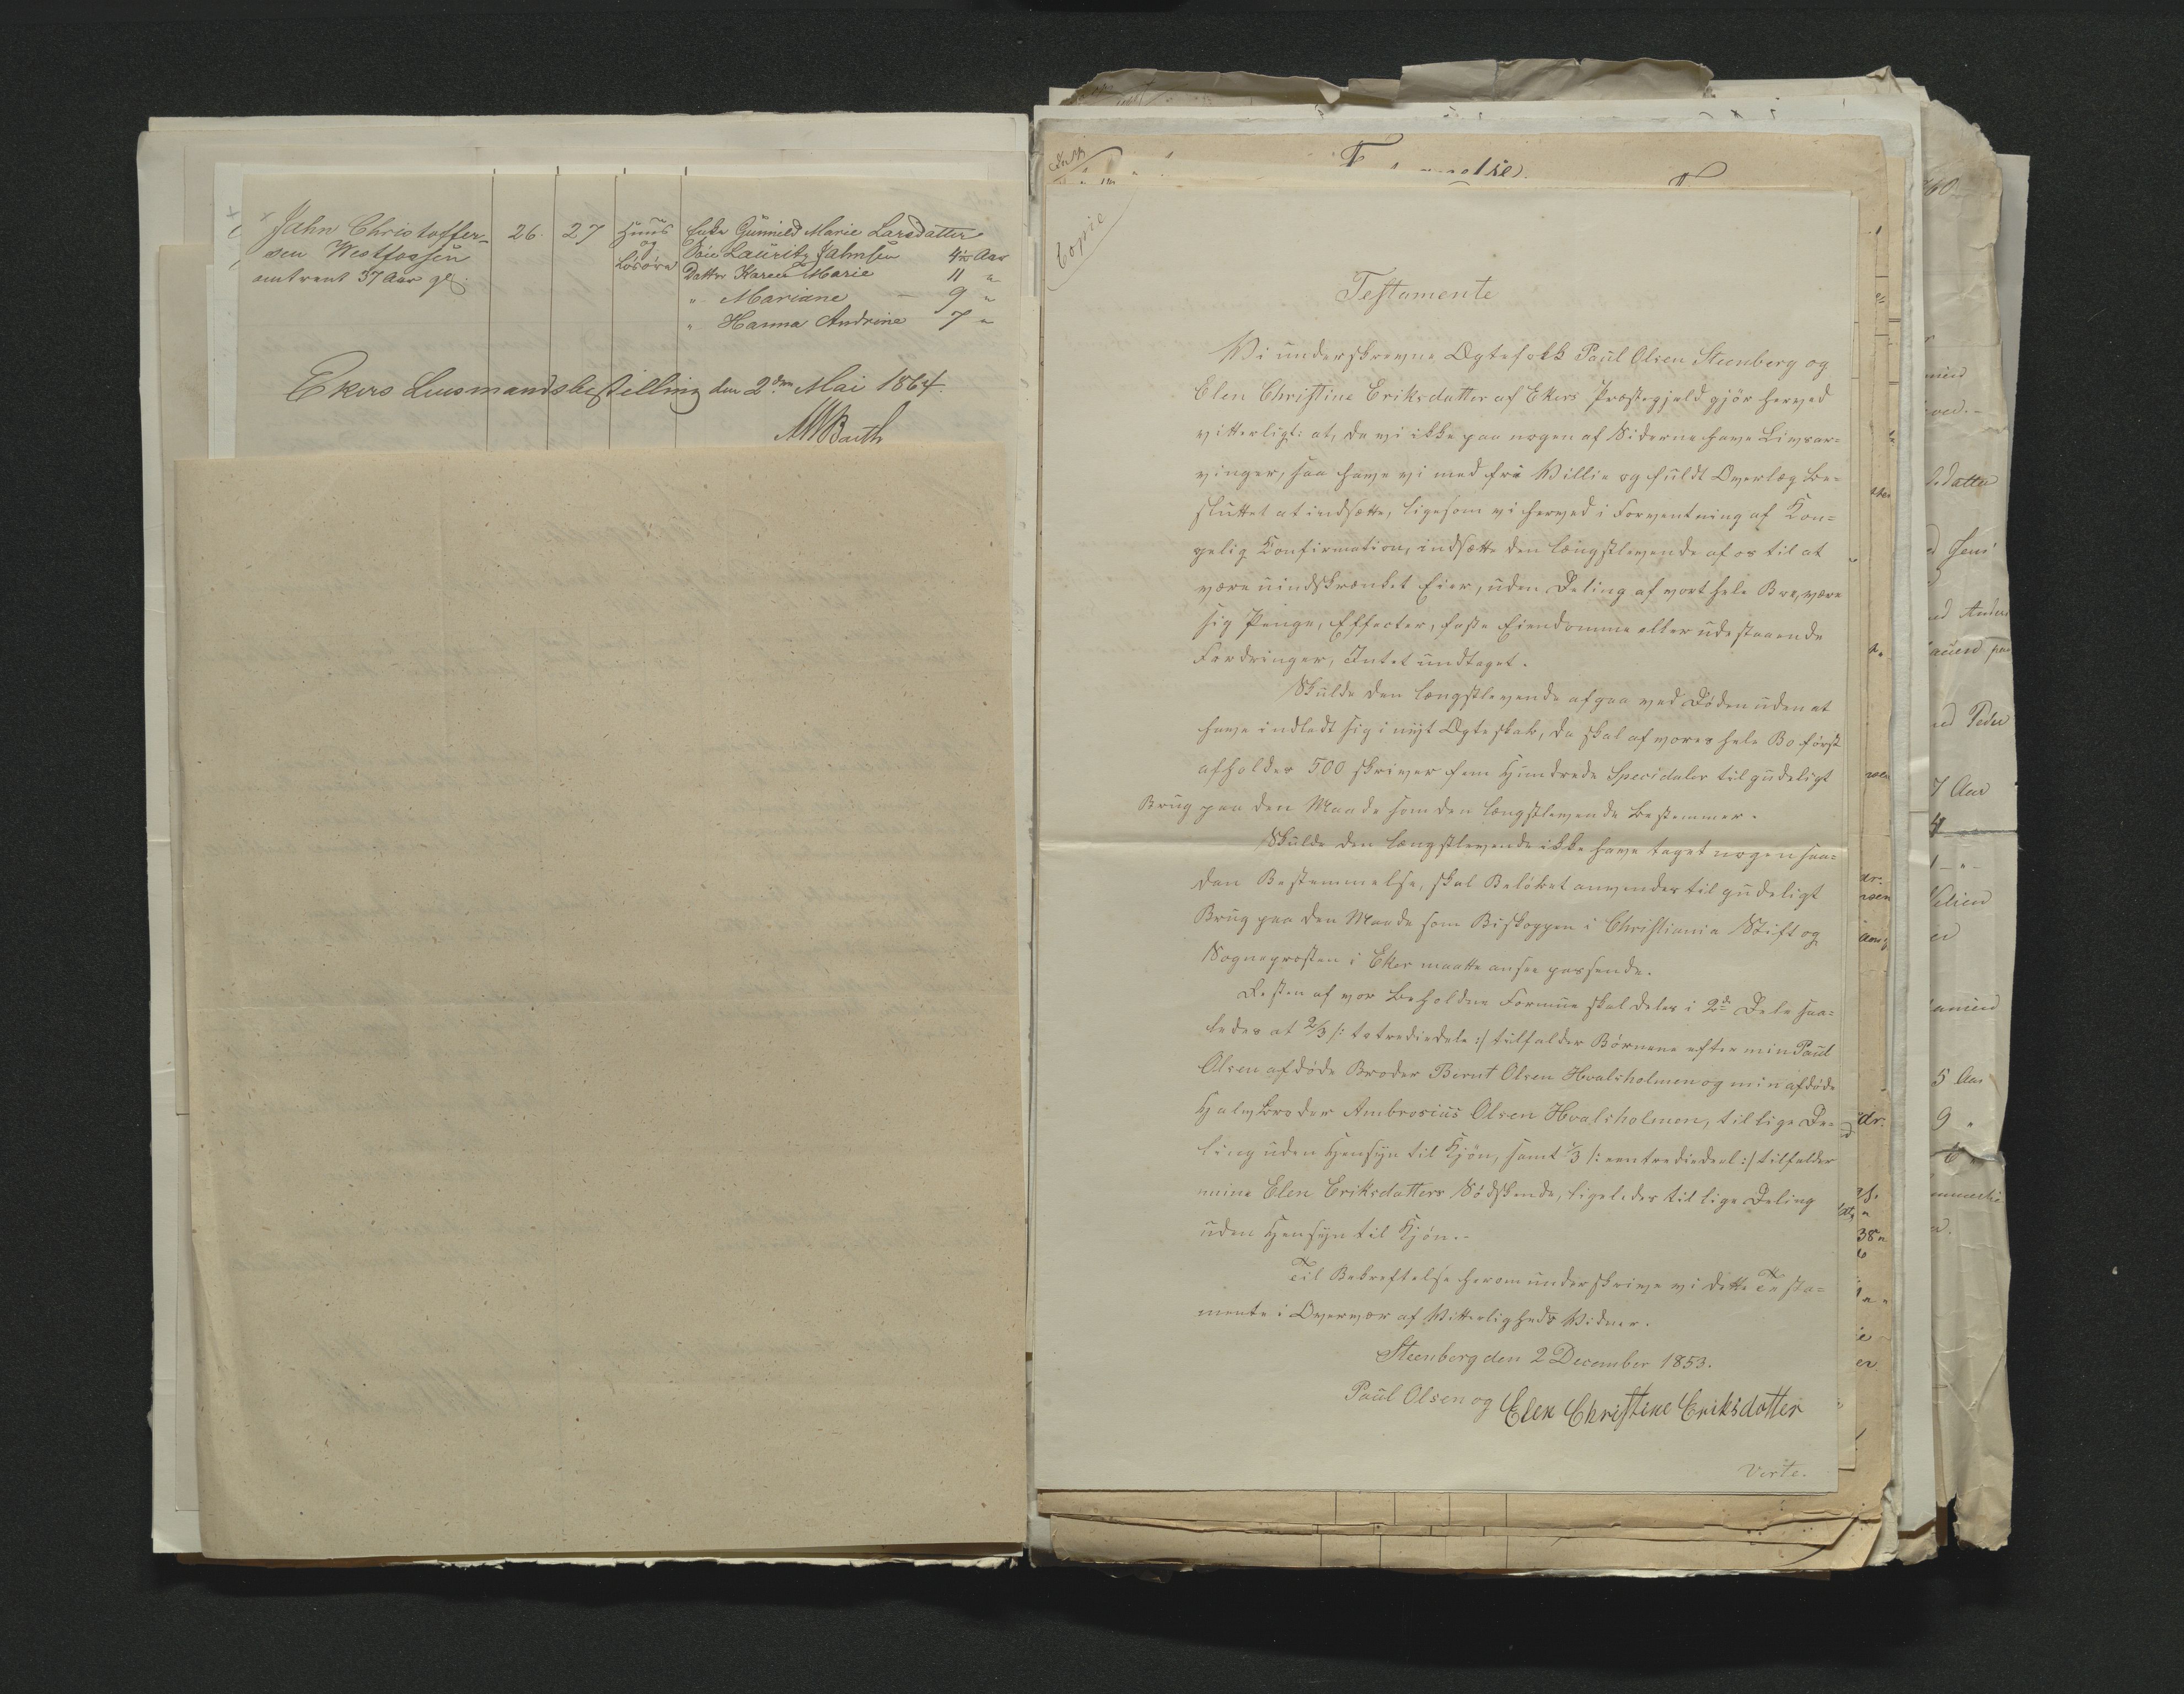 Jahn Christoffer-
sen Westfossen
omtrent 37 Aar gl.
26. 27 Huus
og
Løsøre
Enke Gunnild Marie Larsdatter
Søn Lauritz Jahnsen 4½ Aar
Datter Karen Marie 11 "
" Mariane — 9 "
" Hanna Andrine 7 "
Ekers Lensmandsbestilling den 2den Mai 1864.
Barth
Copie
Testamente
Vi underskrevne Ægtefolk Paul Olsen Steenberg og
Elen Christine Eriksdatter af Ekers Præstegjeld gjør herved
vitterligt: at, da vi ikke paa nogen af Siderne have Livsar=
vinger, saa have vi med fri Villie og fuldt Overlæg be=
sluttet at indsætte, ligesom vi herved i Forventning af Kon=
gelig Confirmation, indsætte den længstlevende af os til at
være uindskrænket Eier, uden Deling af vort hele Boe, være
sig Penge, Effecter, faste Eiendomme eller udestaaende
Fordringer, Intet undtaget.
Skulde den længstlevende afgaa ved Døden uden at
have indladt sig i nyt Ægteskab, da skal af vores hele Bo først
afholdes 500 skriver fem Hundrede Speciedaler til gudeligt
Brug paa den Maade som den længstlevende bestemmer.
Skulde den længstlevende ikke have taget nogen saa=
dan Bestemmelse, skal Beløbet anvendes til gudeligt
Brug paa den Maade som Biskoppen i Christiania Stift og
Sogneprosten i Eker maatte ansee passende.
Resten af vor beholdne Formue skal deles i 2de Dele saa=
ledes at 2/3 /: totrediedele :/ tilfalder Børnene efter min Paul
Olsen afdøde Broder Bernt Olsen Hvalsholmen og min afdøde
Halvbroder Ambrosius Olsen Hvalsholmen, til lige De=
ling uden Hensyn til Kjøn, samt 1/3 /: eentrediedeel :/ tilfalder
mine Elen Eriksdatters Sødskende, ligeledes til lige Deling
uden Hensyn til Kjøn.-
Til Bekræftelse herom underskrive vi dette Testa=
mente i Overvær af Vitterligheds Vidner.
Steenberg den 2 December 1853.
Paul Olsen og Elen Christine Eriksdatter
Verte.